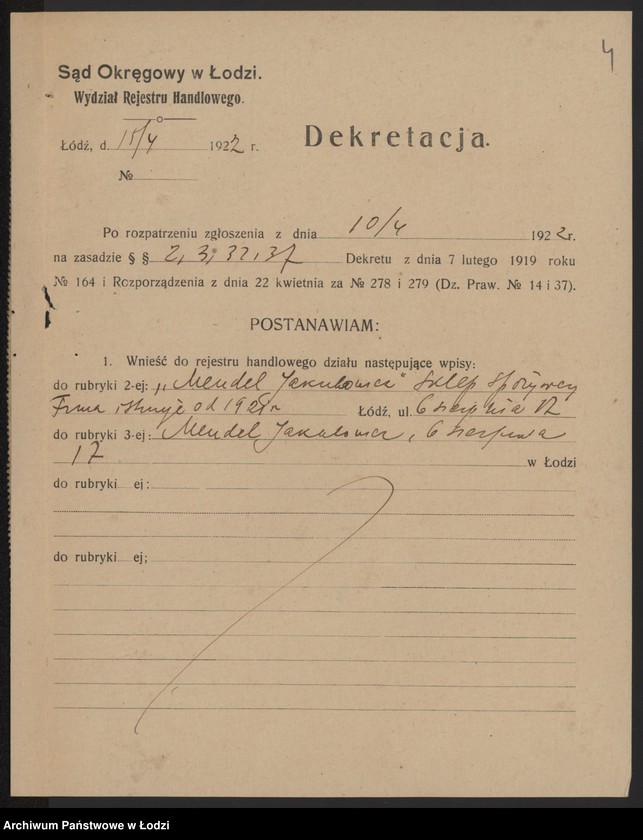 4
Sąd Okręgowy w Łodzi.
Wydział Rejestru Handlowego.
Łódź, d. 15/4 1922 r.
Dekretacja.
№
Po rozpatrzeniu zgłoszenia z dnia 10/4 1922r.
na zasadzie § § 2, 3, 32, 37 Dekretu z dnia 7 lutego 1919 roku
№ 164 i Rozporządzenia z dnia 22 kwietnia za № 278 i 279 (Dz. Praw. № 14 i 37).
POSTANAWIAM:
1. Wnieść do rejestru handlowego działu następujące wpisy:
do rubryki 2-ej: „Mendel Jakubowicz" Sklep spożywczy
Firma istnieje od 1921 r Łódź, ul. 6 sierpnia 17
do rubryki 3-ej: Mendel Jakubowicz, 6 sierpnia
17 w Łodzi
do rubryki ej:
do rubryki ej;
Archiwum Państwowe w Łodzi